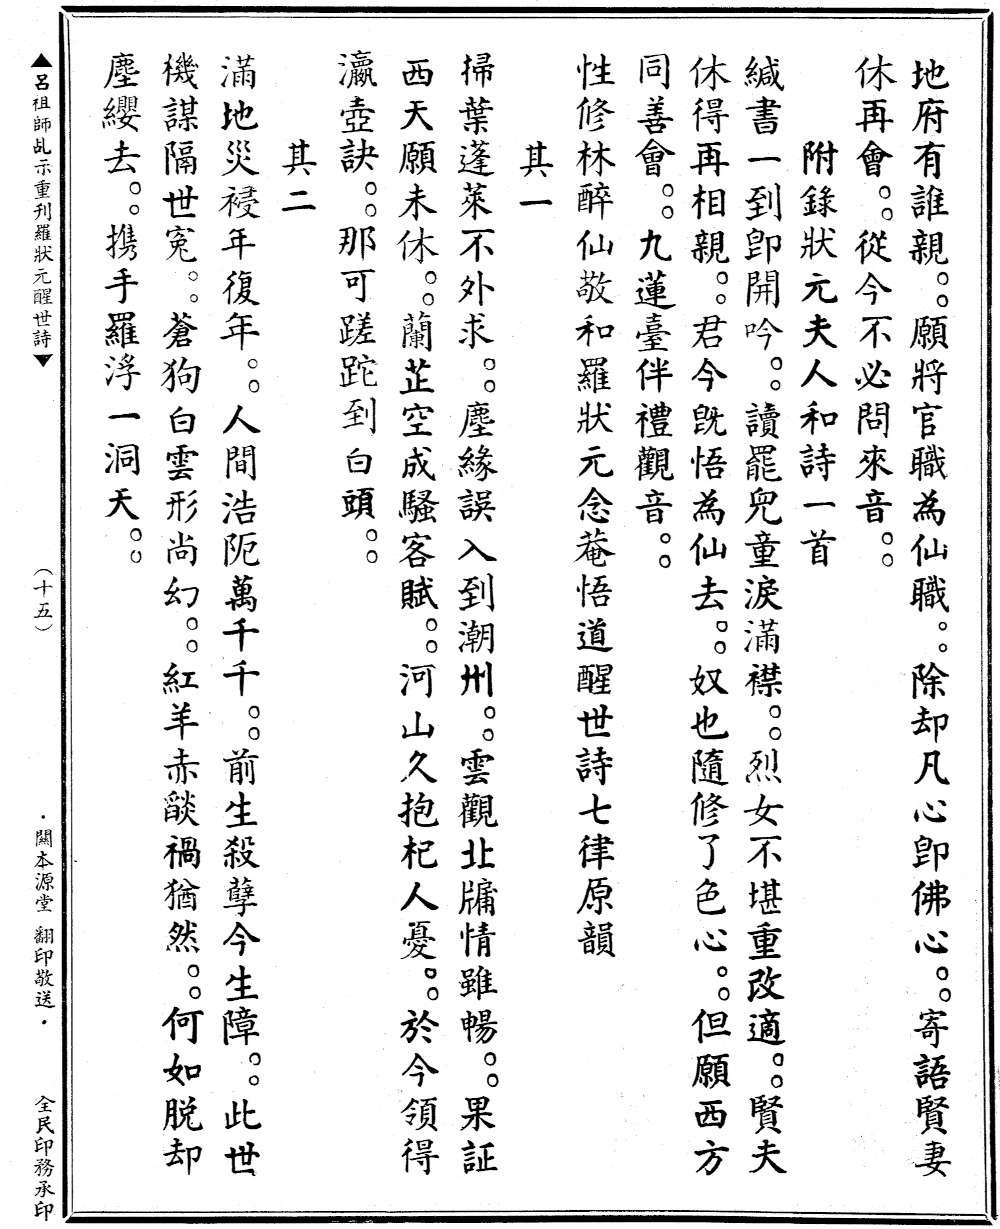 地府有誰親。。願將官職為仙職。。除却凡心卽佛心。。寄語賢妻
休再會。。從今不必問來音。。
附錄狀元夫人和詩一首
緘書一到卽開吟。。讀罷兒童淚滿襟。。烈女不堪重改適。。賢夫
休得再相親。。君今旣悟為仙去。。奴也隨修了色心。。但願西方
同善會。。九蓮臺伴禮觀音。。
性修林醉仙敬和羅狀元念菴悟道醒世詩七律原韻
其一
掃葉蓬萊不外求。。塵緣誤入到潮州。。雲觀北牗情雖暢。。果証
西天願未休。。蘭芷空成騷客賦。。河山久抱杞人憂。。於今領得
瀛壺訣。。那可蹉跎到白頭。。
其二
滿地災祲年復年。。人間浩阨萬千千。。前生殺孽今生障。。此世
機謀隔世寃。。蒼狗白雲形尚幻。。紅羊赤燄禍猶然。。何如脫却
塵纓去。。携手羅浮一洞天。。
▲呂祖師乩示重刊羅狀元醒世詩▼
（十五）
·關本源堂 翻印敬送·
全民印務承印